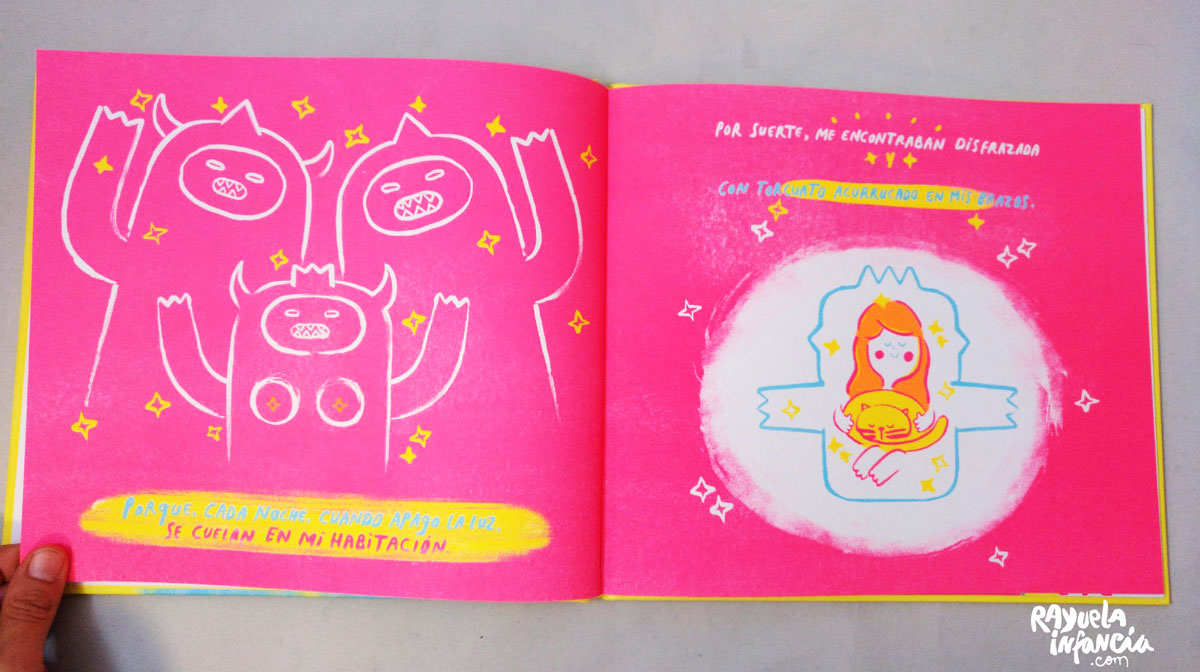 PORQUE, CADA NOCHE, CUANDO APAGO LA LUZ,
SE CUELAN EN MI HABITACIÓN.
POR SUERTE, ME ENCONTRABAN DISFRAZADA
Y
CON TORCUATO ACURRUCADO EN MIS BRAZOS.
RAYUELA
INFANCIA
.com